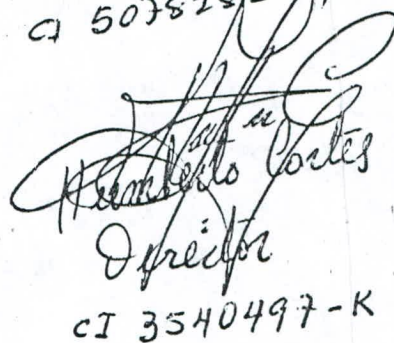 CI 50781
Humberto Cortés
Director
CI 3540497-K